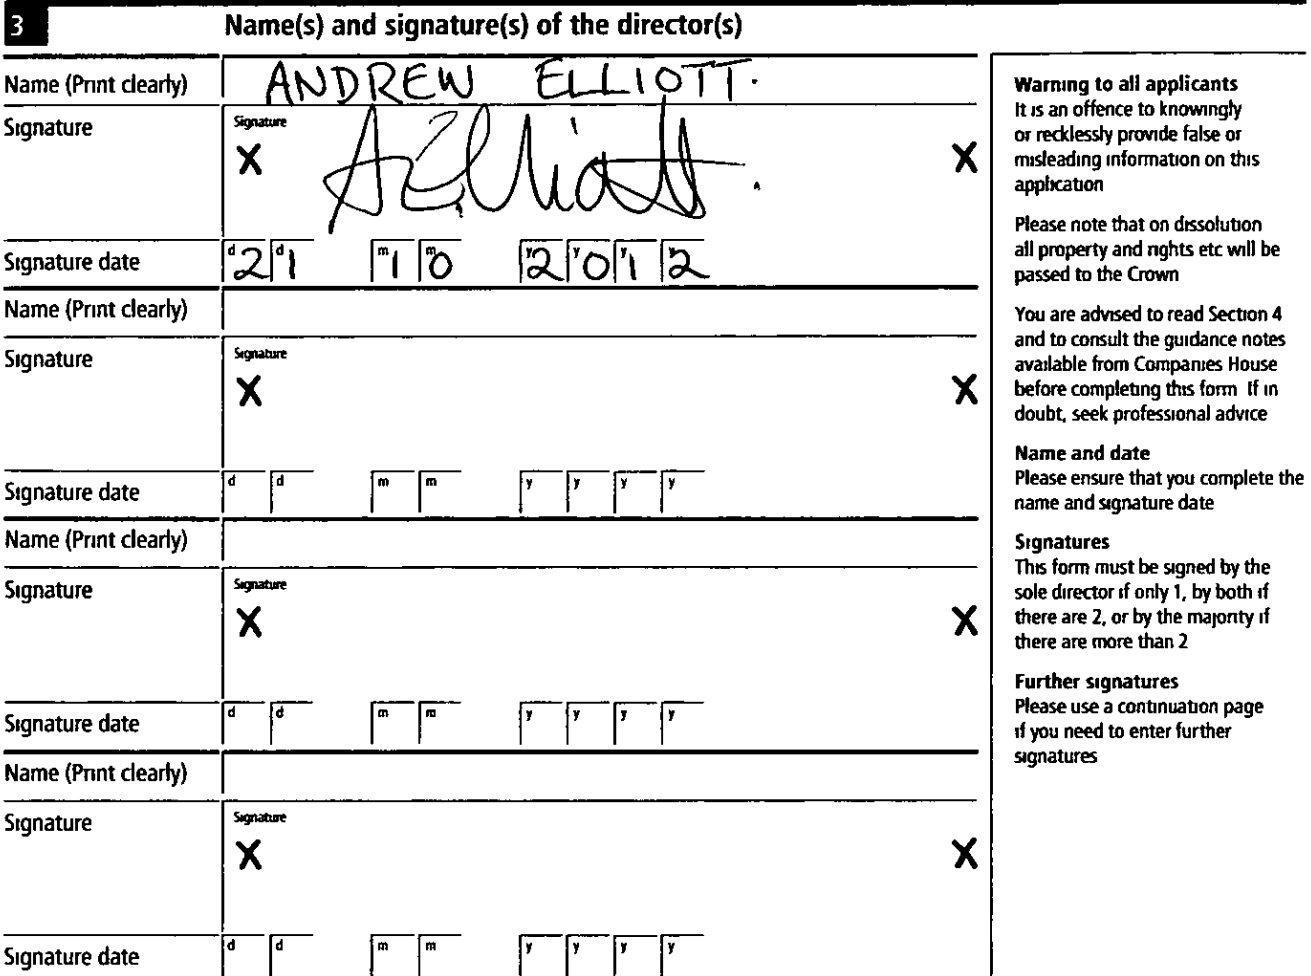 3 Name(s) and signature(s) of the director(s)
Name (Print clearly) ANDREW ELLIOTT.
Signature Signature
X X
A Elliott.
Signature date d d m m y y y y
21 10 2012
Name (Print clearly)
Signature Signature
X X
Signature date d d m m y y y y
Name (Print clearly)
Signature Signature
X X
Signature date d d m m y y y y
Name (Print clearly)
Signature Signature
X X
Signature date d d m m y y y y
Warning to all applicants
It is an offence to knowingly
or recklessly provide false or
misleading information on this
application
Please note that on dissolution
all property and rights etc will be
passed to the Crown
You are advised to read Section 4
and to consult the guidance notes
available from Companies House
before completing this form If in
doubt, seek professional advice
Name and date
Please ensure that you complete the
name and signature date
Signatures
This form must be signed by the
sole director if only 1, by both if
there are 2, or by the majority if
there are more than 2
Further signatures
Please use a continuation page
if you need to enter further
signatures